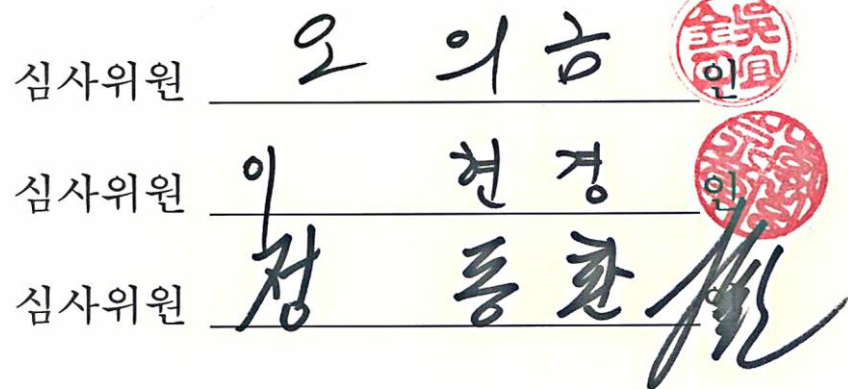 심사위원 오 의 금 인
심사위원 이 현 경 인
심사위원 정 동 환